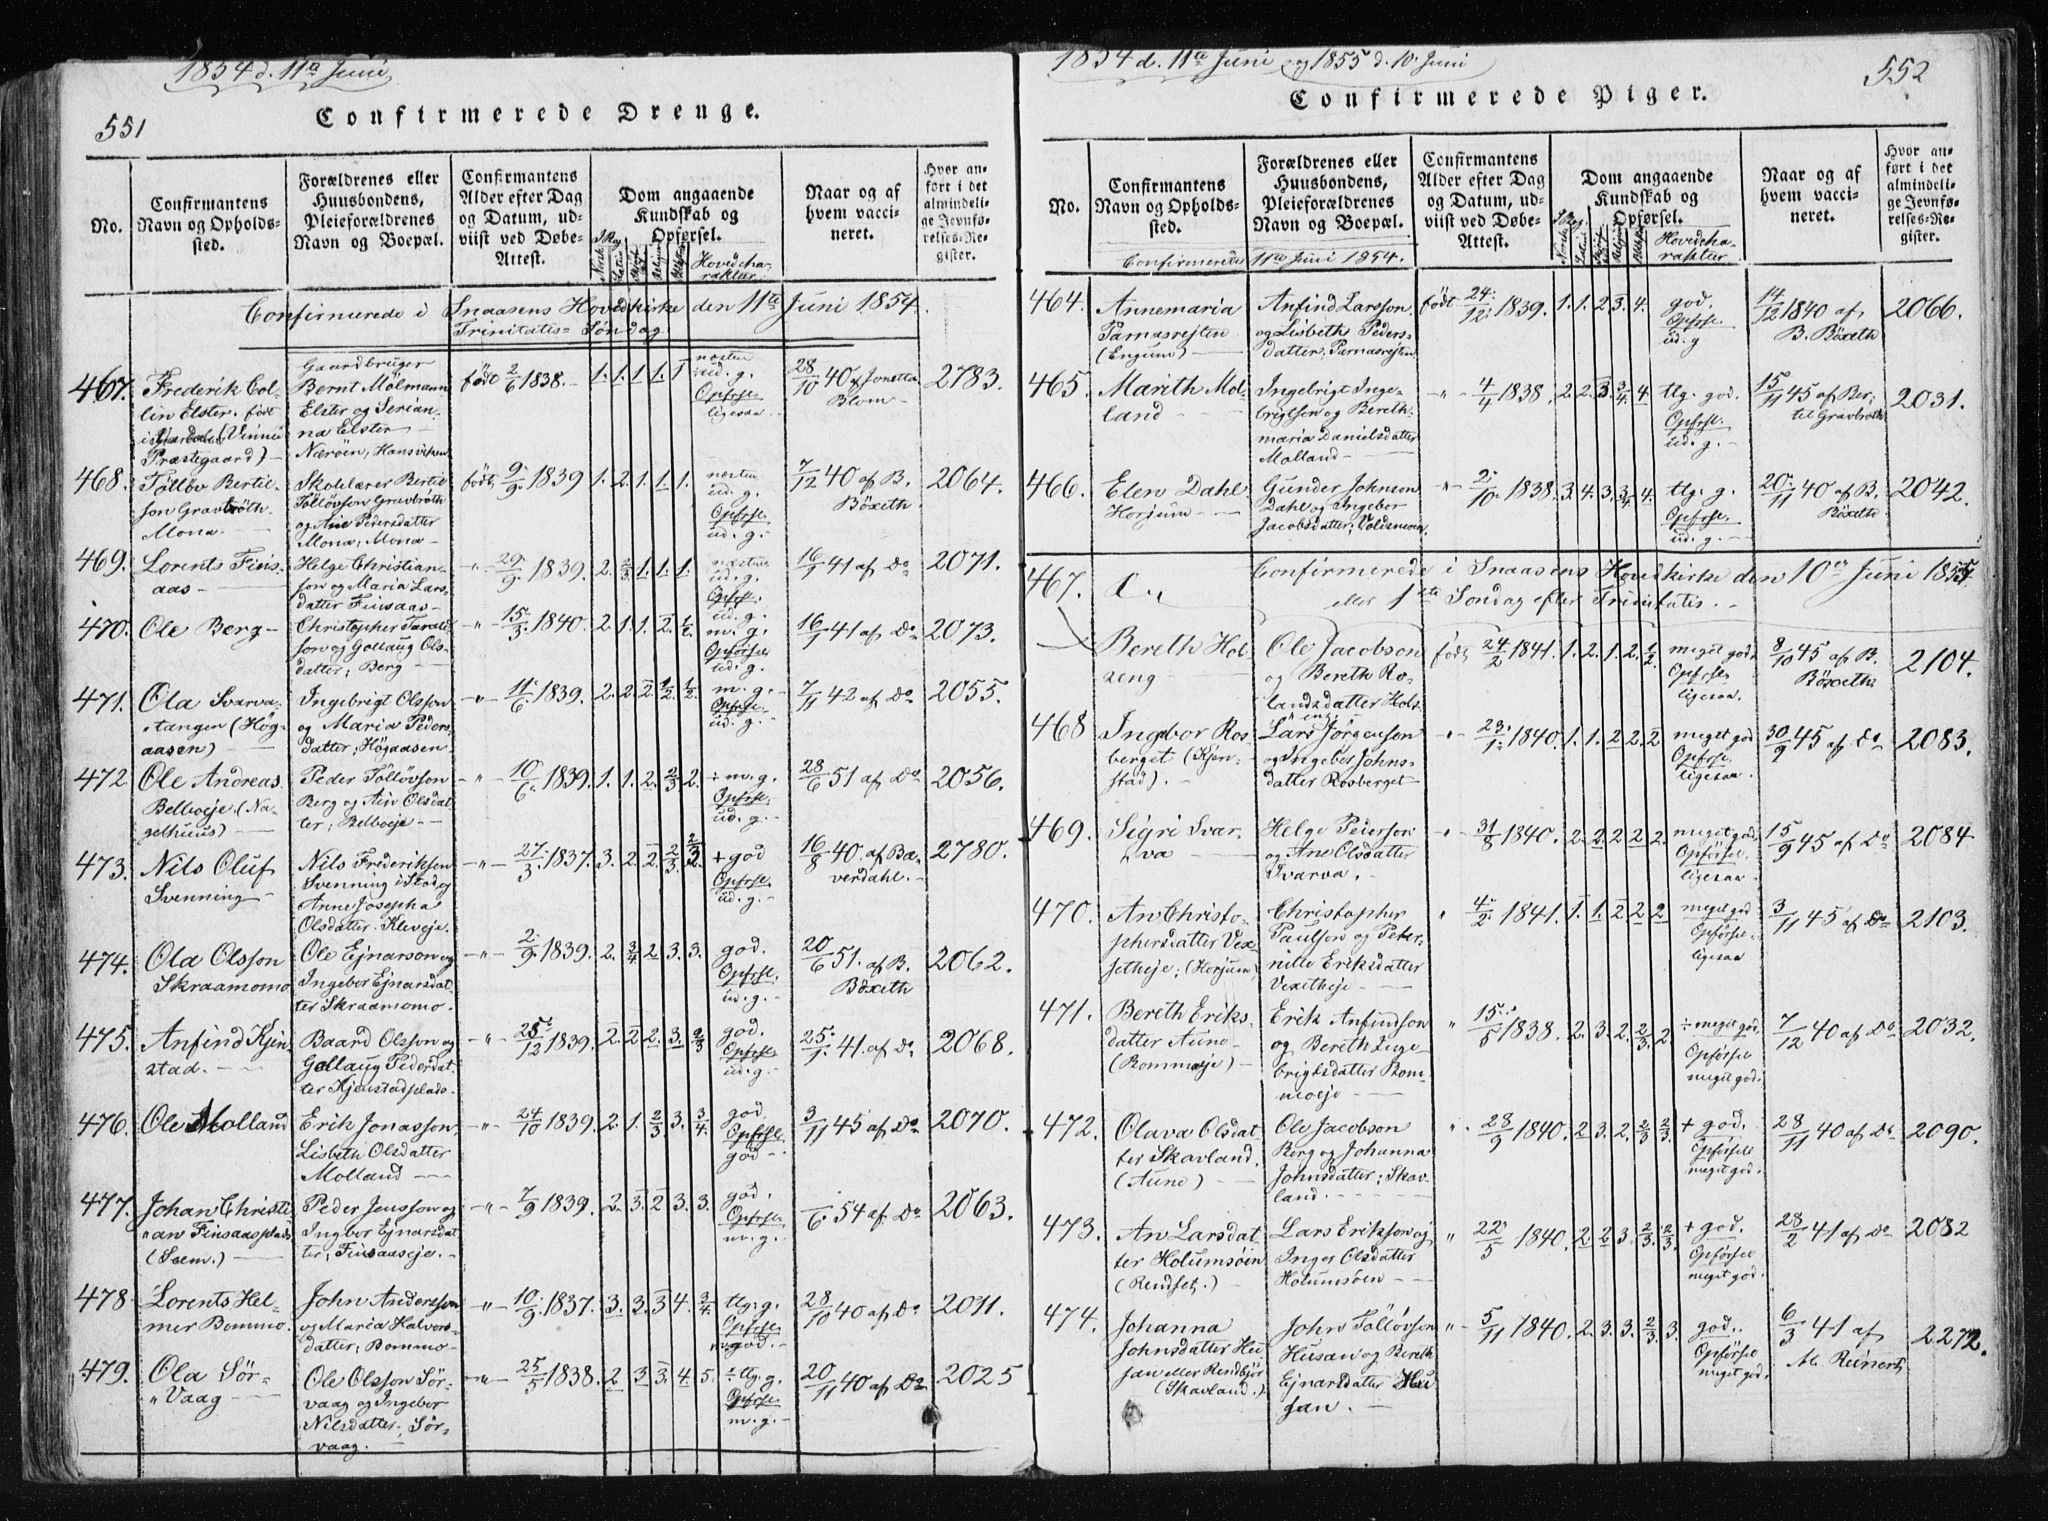 1854 d. 11te Juni
551
Confirmerede Drenge.
No.
Confirmantens
Navn og Opholds-
sted.
Forældrenes eller
Huusbondens,
Pleieforældrenes
Navn og Boepæl.
Confirmantens
Alder efter Dag
og Datum, ud-
viist ved Døbe-
Attest.
Dom angaaende
Kundskab og
Opførsel.
Hovedcha-
rakter
Naar og af
hvem vacci-
neret.
Hvor an-
ført i det
almindeli-
ge Jevnfø-
relses-Re-
gister.
Confirmerede i Snaasens Hovedkirke den 11te Juni 1854.
Trinitatis-Søndag
467. Frederik Col-
lin Elster. født
Præstegaard)
Gaardbruger
Bernt Mölmann
Elster og Serian-
na Elster
Nærøen, Hansviken
født 2/6 1838. 1. 1. 1. 1. 1 næsten ud. g. Opfrse. ligesaa 28/10 40 af Jonetta Blom 2783.
468. Tölløv Bertil-
son Gravbröth
Mona
Skolelærer Bertil
Tölløvson Gravbröth
og Ane Pedersdatter
Mona; Mona
født 9/9 1839 1. 2. 1. 1. 1. næsten ud. g. Opfrse. ud. g. 7/12 40 af B. Böxeth 2064.
469. Lorents Fins-
aas
Helge Christian-
son og Maria Lars-
datter Finsaas
-"- 29/9 1839. 2. 2/3 1. 1. 1. næsten ud. g. Opfrse. ud. g. 16/1 41 af Do 2071.
470. Ole Berg
Christopher Tarald-
son og Gollaug Ols-
datter; Berg
-"- 15/3 1840. 2. 1. 1. 2. 1/2 m. g. Opförsel ud. g. 16/1 41 af Do 2073.
471. Ola Svarva-
tangen (Hög-
aasen)
Ingebrigt Olsson
og Maria Peders-
datter; Högaasen
-"- 11/6 1839. 2. 2. 2 1/2. 1/2. m. g. Opfrse. ud. g. 7/11 42 af Do 2055.
472 Ole Andreas
Belboeje (Na-
gelhuus)
Peder Tölløvson
Berg og An Olsdat-
ter; Belboeje
-"- 10/6 1839. 1. 1. 2. 2/3 2. ÷ m. g. Opfrse. ud. g. 28/6 51 af Do 2056.
473. Nils Oluf
Svenning
Nils Frederikson
Svenning i Stod, og
Anne Josepha
Olsdatter. Kleveje.
-"- 27/3 1837. 3. 2. 2. 2/3. 2/3. + god Opfrse. ud. g. 16/8 40. af Bæ-
verdahl. 2780.
474. Ola Olsson
Skraamomo
Ole Ejnarson og
Ingebor Ejnarsdat-
ter Skraamomo.
-"- 2/9 1839. 2. 3/4 2. 3. 3. god. Opfrse. ud. g. 20/6 51. af B. Böxeth 2062.
475. Anfind Kjen-
stad.
Baard Olsson og
Gollaug Pedersdat-
ter Kjenstadplads
-"- 25/12 1839. 2. 2 2. 3. 2/3 god. Opfrse. ud. g. 25/1 41. af Do 2068.
476. Ole Molland
Erik Jonasson,
Lisbeth Olsdatter
Molland
-"- 24/10 1839. 2. 1. 2/3 3. 3/4. god. Opfrse. god 3/11 45 af Do 2070.
477. Johan Christi-
an Finsaasplads
(Seem.)
Peder Jensson og
Ingbor Ejnarsdat-
ter; Finsaaseje.
-"- 7/9 1839. 2. 3. 2 3. 3. god. Opfrse. m. g. /6. 54 af Do 2063.
478 Lorents Hel-
mer Bommo.
John Andersson
og Maria Halvors-
datter; Bommo
-"- 10/9 1837. 3. 3. 3 4. 3/4. tlg: g. Opfrse. god. 28/10 40 af Do 2011.
479. Ola Sör-
" Vaag
Ole Olsson Sör-
vaag og Ingebor
Nilsdatter, Sör-
vaag.
-"- 25/5 1838. 2. 3. 3. 4 5. ÷ tlg. g. Opfrse. m. g. 20/11 40 af Do 2025
1854 d. 11te Juni og 1855 d. 10. Juni
552
Confirmerede Piger.
No.
Confirmantens
Navn og Opholds-
sted.
Forældrenes eller
Huusbondens,
Pleieforældrenes
Navn og Boepæl.
Confirmantens
Alder efter Dag
og Datum, ud-
viist ved Døbe-
Attest.
Dom angaaende
Kundskab og
Opførsel.
Hovedcha-
rakter
Naar og af
hvem vacci-
neret.
Hvor an-
ført i det
almindeli-
ge Jevnfø-
relses-Re-
gister.
Confirmerede 11te Juni 1854.
464. Annemaria
Parnasrejten
(Engum)
Anfind Larsson
og Lisbeth Peders-
datter; Parnasrejten
født 24/12 1839. 1. 1. 2 3. 4. god. Opfrse. ud. g 14/12 1840 af B. Böxeth 2066.
465. Marith Mol-
land
Ingebrigt Inge-
brigtson og Bereth-
maria Danielsdatter
Molland
-"- 4/4 1838. 2. 2. 3. 3/4. 4 tlg. god. Opfrse. ud. g. 15/11 45 af Ber-
til Gravbröth 2031.
466. Elen Dahl
Horjum
Gunder Johnson
Dahl og Ingebor
Jacobsdatter; Voldmoen
-"- 2/10 1838. 3. 4. 3. 3/4. 4. tlg. g. Opfrse. ud. g. 20/11 40 af B. Böxeth 2042.
467. Confirmerede i Snaasens Hovedkirke den 10de Juni 1855
eller 1ste Søndag efter Trinitatis.
Bereth Hol-
seng
Ole Jacobson
og Bereth Ro-
landsdatter Hols-
eng
født 24/2 1841. 1. 2. 1. 2. 1/2. meget god. Opförse ligesaa. 8/10 45 af B. Böxeth 2104.
468 Ingebor Ros-
berget (Kjen-
stad).
Lars Jörgenson
og Ingebor Johns-
datter Rosberget
-"- 23/1 1840. 1. 1. 2 2. 2 meget god Opfrse. ligesaa 30/9 45 af Do 2083.
469. Sigri Svar-
va
Helge Pederson
og Ane Olsdatter
Svarva.
-"- 31/8 1840. 2. 2. 2 2 2. meget god. Opförsel. ligesaa 15/9 45 af Do 2084
470. An Christo-
phersdatter Vex-
setheje; (Horjum)
Christopher
Paulson og Peter-
nille Eriksdatter
Vexetheje
" 4/2 1841. 1. 1. 2 2 2 meget god Opförse ligesaa 3/11 45 af Do 2103.
471. Bereth Eriks-
datter Aune
(Bommoeje)
Erik Anfindson
og Bereth Inge-
brigtsdatter Bom-
moeje
" 15/5 1838. 2. 3. 2. 2/3. 2. ÷ meget god. Opförsel meget god. 7/12 40 af Do 2032.
472. Olava Olsdat-
ter Skavland.
(Aune)
Ole Jacobson
Berg og Johanna
Johnsdatter; Skav-
land.
". 28/9 1840. 2. 3. 2. 2/3 2/3. + god. Opförsel meget god. 28/11 40 af Do 2090.
473. An Larsdat-
ter Holumsöien
(Rendset.)
Lars Erikson og
Inger Olsdatter
Holumsöen
" 22/5 1840. 2 2. 3. 2/3. 2/3. + god. Opförsel meget god. 28/2 41 af Do 2082
474. Johanna
Johnsdatter Hu-
san eller Rendbjör
(Skavland.)
John Tölløvson
Husan og Bereth
Ejnarsdatter Hu-
san.
"- 5/11 1840. 2. 3. 3. 2/3 3. god. Opförse meget god. 6/3 41 af M. Reinert 2272.